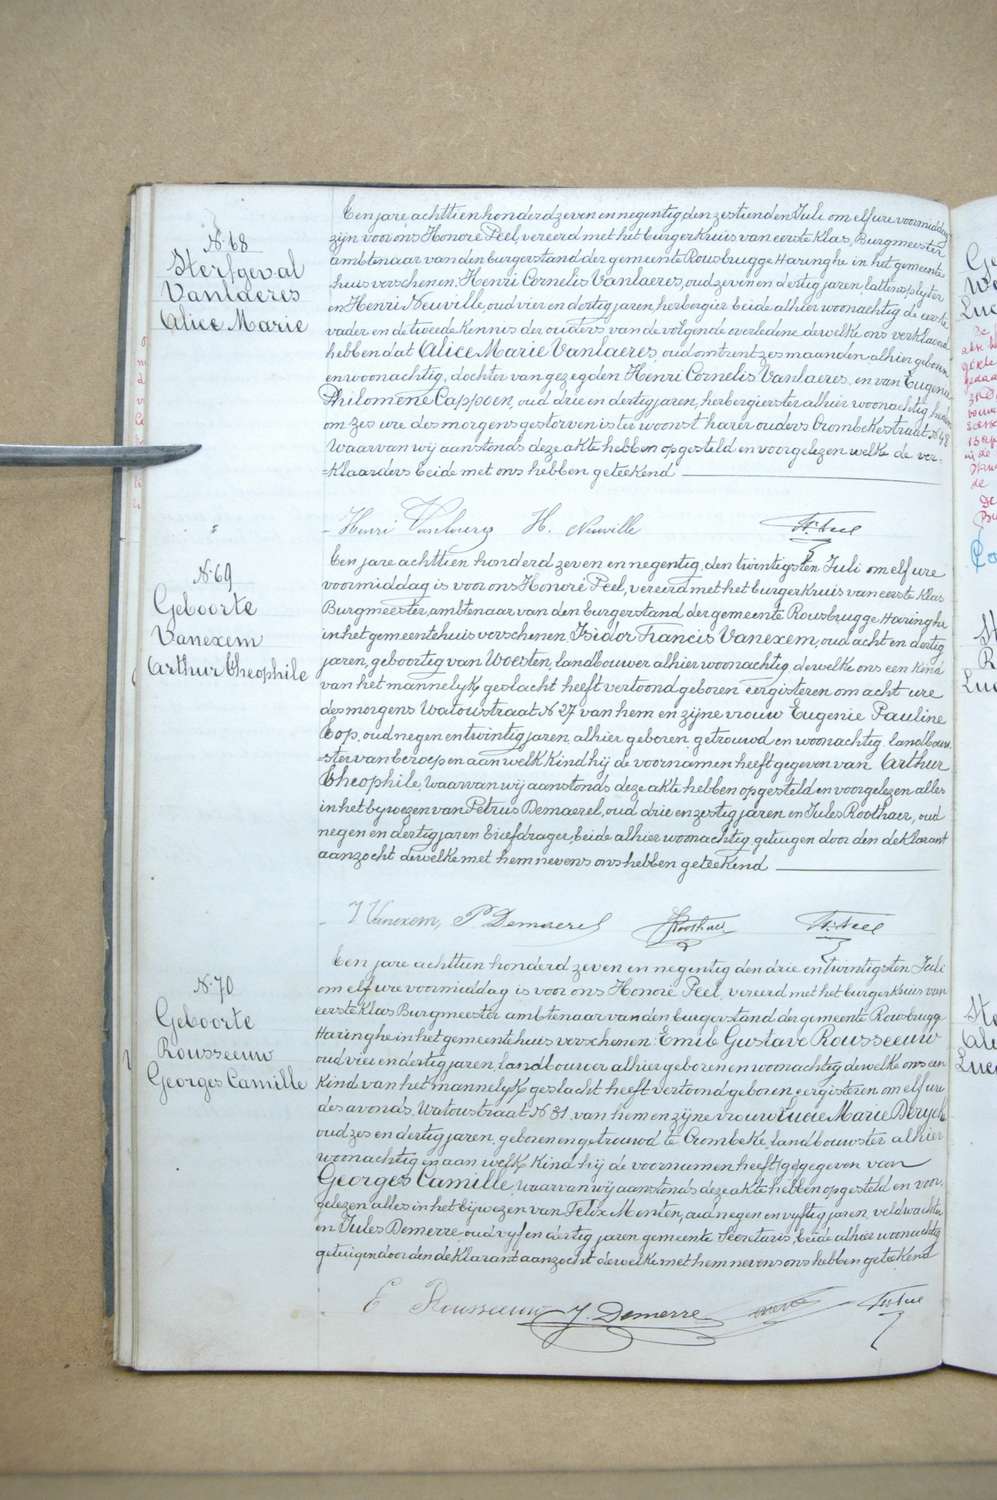 N. 68
Sterfgeval
Vanlaeres
Alice Marie
Een jare achttien honderd zeven en negentig den zestienden Juli om elf ure voormiddag
zijn voor ons Honoré Peel, vereerd met het burgerkruis van eerste Klas, Burgmeester
ambtenaar van den burgerstand der gemeente Rousbrugge Haringhe in het gemeente
huis verschenen, Henri Cornelis Vanlaeres, oud zeven en dertig jaren, lattensplyter
en Henri Neuville, oud vier en dertig jaren, herbergier beide alhier woonachtig de eerste
vader en de tweede kennis der ouders van de volgende overledene dewelke ons verklaard
hebben dat Alice Marie Vanlaeres, oud omtrent zes maanden, alhier geboren
en woonachtig, dochter van gezegden Henri Cornelis Vanlaeres en van Eugenie
Philomene Cappoen, oud drie en dertig jaren, herbergierster alhier woonachtig heden
om zes ure des morgens gestorven is ter woonst harer ouders Crombekestraat N 48
Waarvan wij aanstonds deze akte hebben opgesteld en voorgelezen welke de ver-
=klaarders beide met ons hebben geteekend
Henri Vanlaeres H. Neuville Hr. Peel
N. 69
Geboorte
Vanexem
Arthur Theophile
Een jare achttien honderd zeven en negentig, den twintigsten Juli om elf ure
voormiddag is voor ons Honoré Peel, vereerd met het burgerkruis van eerste Klas
Burgmeester, ambtenaar van den burgerstand der gemeente Rousbrugge Haringhe
in het gemeentehuis verschenen Isidor Francis Vanexem, oud acht en dertig
jaren, geboortig van Woesten, landbouwer alhier woonachtig dewelke ons een kind
van het mannelyk geslacht heeft vertoond geboren eergisteren om acht ure
des morgens Watoustraat N 27 van hem en zijne vrouw Eugenie Pauline
Top, oud negen en twintig jaren, alhier geboren, getrouwd en woonachtig, landbouw
=ster van beroep en aan welk Kind hij de voornamen heeft gegeven van Arthur
Theophile, waarvan wij aanstonds deze akte hebben opgesteld en voorgelezen alles
in het bywezen van Petrus Demaerel, oud drie en zestig jaren en Jules Roothaer, oud
negen en dertig jaren briefdrager, beide alhier woonachtig, getuigen door den deklarant
aanzocht dewelke met hem nevens ons hebben geteekend
I Vanexem, P Demaerel J Roothaer Hr. Peel
N. 70
Geboorte
Rousseeuw
Georges Camille
Een jare achttien honderd zeven en negentig den drie en twintigsten Juli
om elf ure voormiddag is voor ons Honoré Peel, vereerd met het burgerkruis van
eerste Klas Burgmeester ambtenaar van den burgerstand der gemeente Rousbrugge
Haringhe in het gemeentehuis verschenen: Emile Gustave Rousseeuw
oud vier en dertig jaren, landbouwer alhier geboren en woonachtig dewelke ons een
Kind van het mannelyk geslacht heeft vertoond geboren, eergisteren om elf ure
des avonds, Watoustraat N 31. van hem en zijne vrouw Lucie Marie Derycke
oud zes en dertig jaren, geboren en getrouwd te Crombeke, landbouwster alhier
woonachtig en aan welk Kind hij de voornamen heeft gegegeven van
Georges Camille, waarvan wij aanstonds deze akte hebben opgesteld en voor
gelezen alles in het bijwezen van Felix Menten, oud negen en vyftig jaren, veldwachter
en Jules Demerre, oud vyf en dertig jaren gemeente Secretaris, beide alhier woonachtig
getuigen door den deklarant aanzocht dewelke met hem nevens ons hebben geteekend
E Rousseeuw J. Demerre Hr Peel